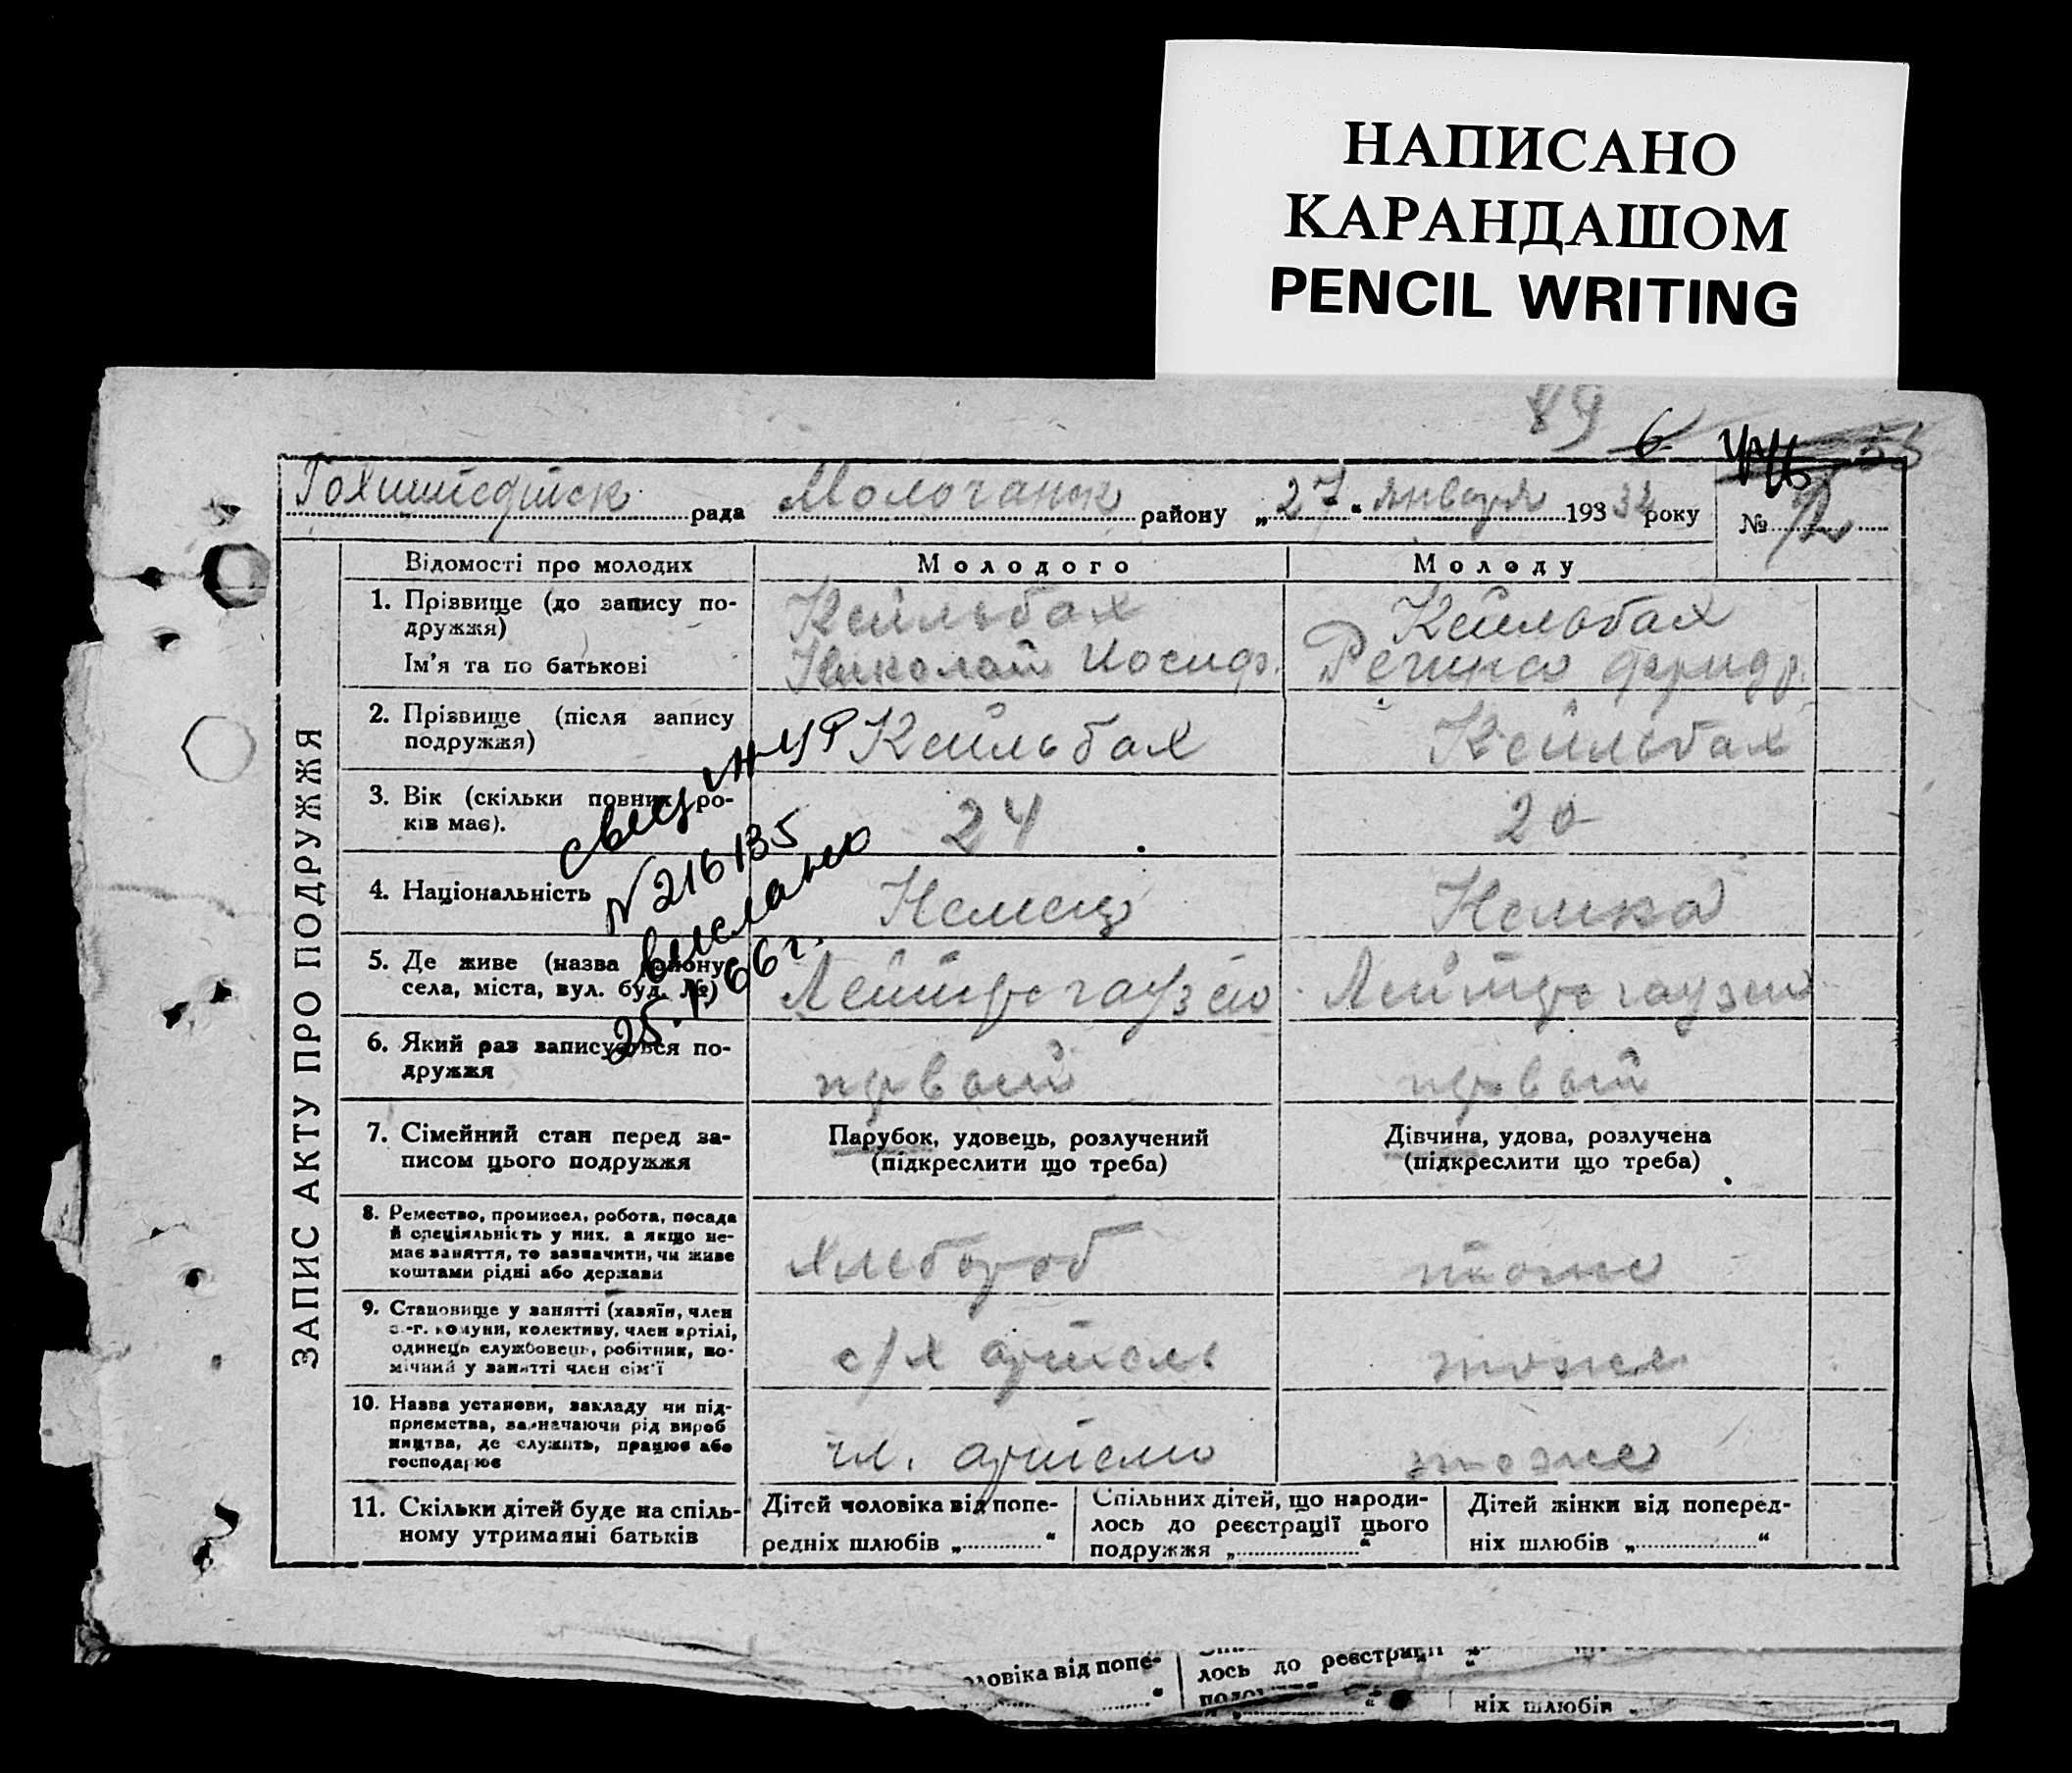 НАПИСАНО
КАРАНДАШОМ
PENCIL WRITING
89 6
Гохштедтск рада Молочанск району „27“ января 193 32 року № 12
ЗАПИС АКТУ ПРО ПОДРУЖЖЯ
Відомості про молодих Молодого Молоду
1. Прізвище (до запису по-
дружжя)
Кейльбах Кейльбах
Ім'я та по батькові Николай Иосиф. Регина Фридр.
2. Прізвище (після запису
подружжя)
Кейльбах Кейльбах
3. Вік (скільки повних ро-
ків має).
24 20
4. Національність Немец Немка
5. Де живе (назва району
села, міста, вул. буд. №)
Лейтерсгаузен Лейтерсгаузен
6. Який раз записується по-
дружжя
первый первый
№ 216135
выслано
25. 66 г.
7. Сімейний стан перед за-
писом цього подружжя
Парубок, удовець, розлучений
(підкреслити що треба)
Дівчина, удова, розлучена
(підкреслити що треба)
8. Ремество, промисел, робота, посада
й спеціяльність у них, а якщо не-
має заняття, то зазначити, чи живе
коштами рідні або держави
Хлебороб тоже
9. Становище у занятті (хазяїн, член
с.-г. комуни, колективу, член артілі,
одинець службовець, робітник, по-
мічний у занятті член сім'ї
с/х артель тоже
10. Назва установи, закладу чи під-
приємства, зазначаючи рід вироб
ництва, де служить, працює або
господарює
чл. артели тоже
11. Скільки дітей буде на спіль-
ному утриманні батьків
Дітей чоловіка від попе-
редніх шлюбів „ “
Спільних дітей, що народи-
лось до реєстрації цього
подружжя „ “
Дітей жінки від поперед-
ніх шлюбів „ “
ловіка від попе-
лось до реєстрації
ніх шлюбів „